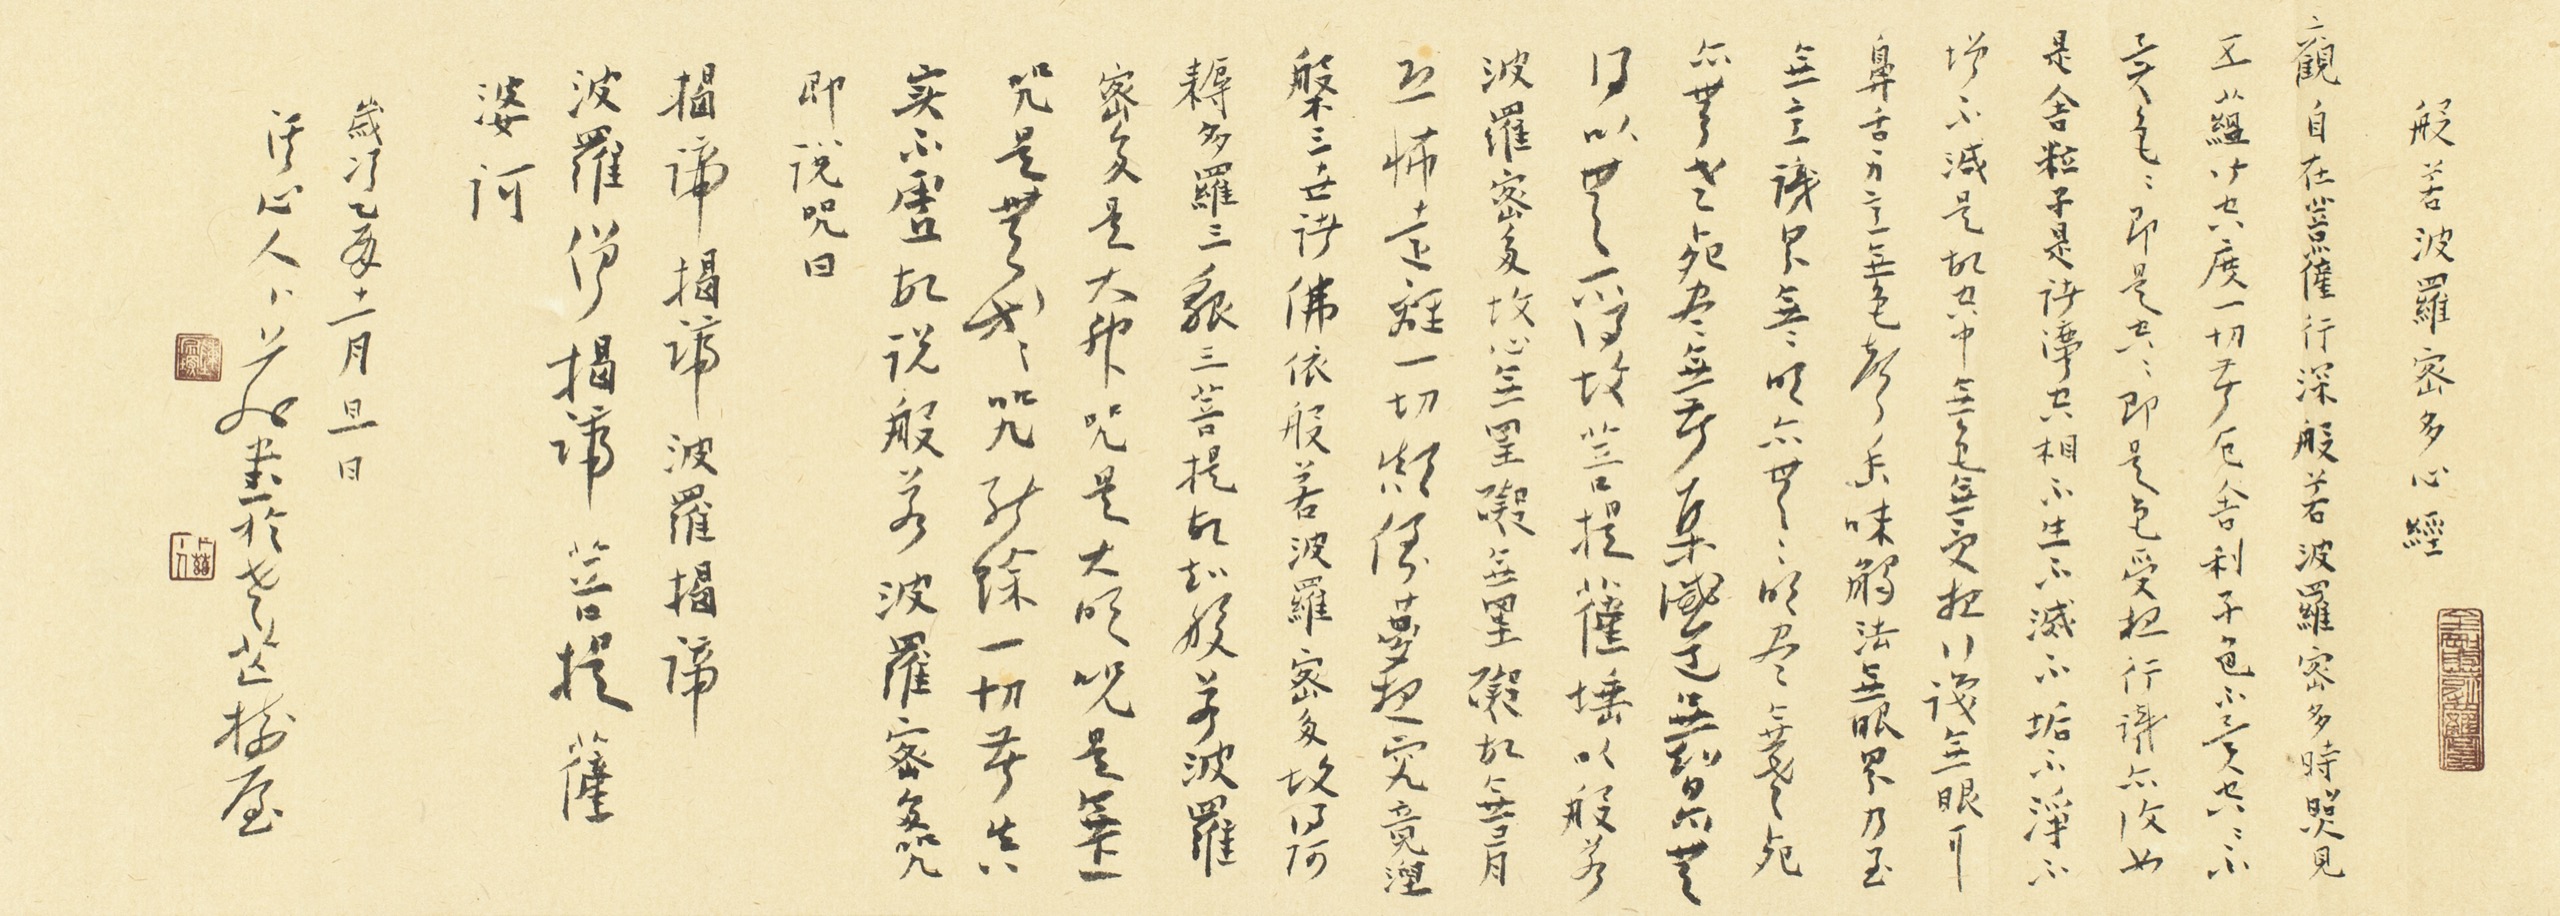 般若波羅密多心經
觀自在菩薩行深般若波羅密多時照見
五蘊皆空度一切苦厄舍利子色不異空空不
異色色即是空空即是色受想行識亦復如
是舍利子是諸法空相不生不滅不垢不淨不
增不減是故空中無色無受想行識無眼耳
鼻舌身意無色聲香味觸法無眼界乃至
無意識界無無明亦無無明盡無老死
亦無老死盡無苦集滅道無智亦無
得以無所得故菩提薩埵以般若
波羅密多故心無罣礙無罣礙故無有
恐怖遠離一切顛倒夢想究竟涅
槃三世諸佛依般若波羅密多故得阿
耨多羅三藐三菩提故知般若波羅
密多是大神咒是大明咒是無上
咒是無等等咒能除一切苦真
实不虛故説般若波羅密多咒
即説咒曰
揭諦揭諦波羅揭諦
波羅僧揭諦菩提薩
婆訶
歲次乙酉十二月旦日
心人書於老芒樹屋